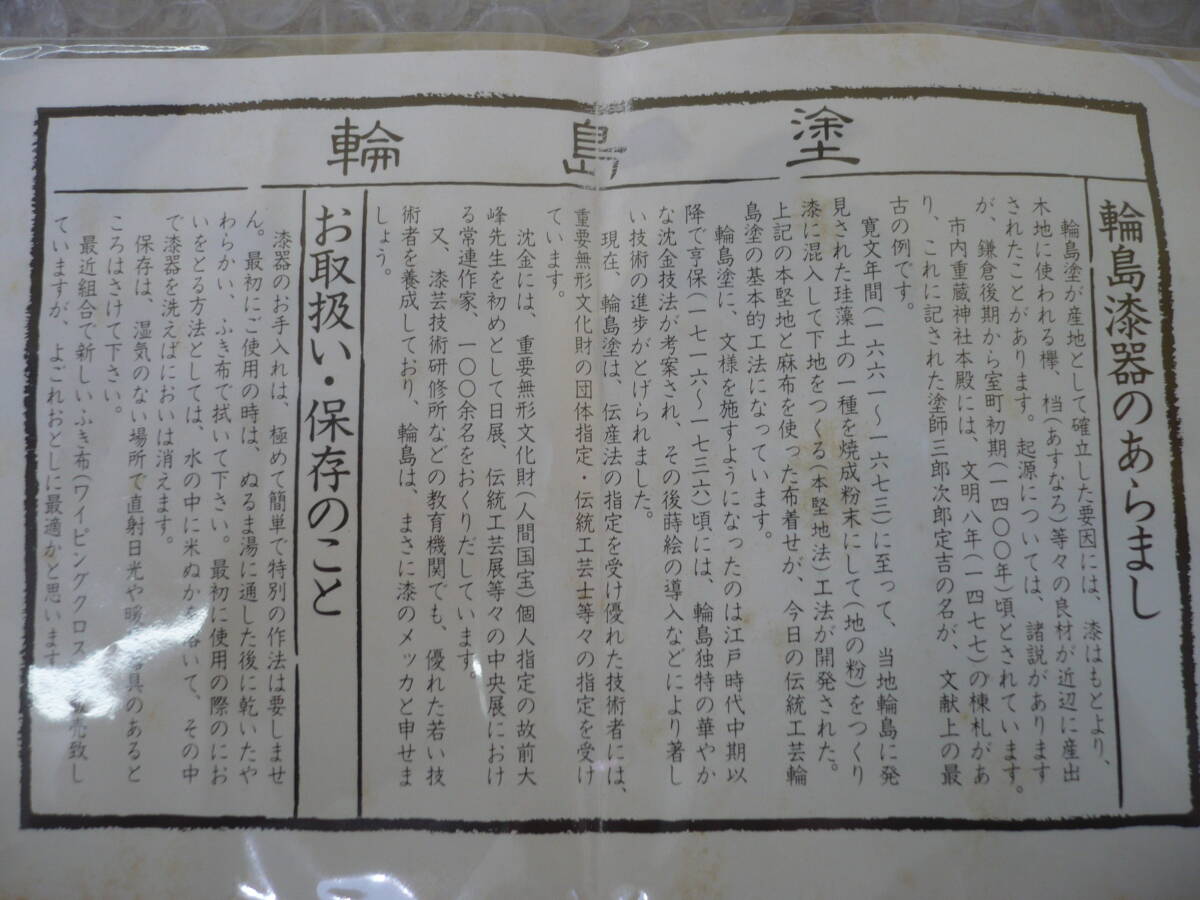 輪島塗
輪島漆器のあらまし
輪島塗が産地として確立した要因には、漆はもとより、
木地に使われる欅、档(あすなろ)等々の良材が近辺に産出
されたことがあります。起源については、諸説があります
が、鎌倉後期から室町初期(一四〇〇年)頃とされています。
市内重蔵神社本殿には、文明八年(一四七七)の棟札があ
り、これに記された塗師三郎次郎定吉の名が、文献上の最
古の例です。
寛文年間(一六六一〜一六七三)に至って、当地輪島に発
見された珪藻土の一種を焼成粉末にして(地の粉)をつくり
漆に混入して下地をつくる(本堅地法)工法が開発された。
上記の本堅地と麻布を使った布着せが、今日の伝統工芸輪
島塗の基本的工法になっています。
輪島塗に、文様を施すようになったのは江戸時代中期以
降で亨保(一七一六〜一七三六)頃には、輪島独特の華やか
な沈金技法が考案され、その後時絵の導入などにより著し
い技術の進歩がとげられました。
現在、輪島塗は、伝産法の指定を受け優れた技術者には、
重要無形文化財の団体指定・伝統工芸士等々の指定を受け
ています。
沈金には、重要無形文化財(人間国宝)個人指定の故前大
峰先生を初めとして日展、伝統工芸展等々の中央展におけ
る常連作家、一〇〇余名をおくりだしています。
又、漆芸技術研修所などの教育機関でも、優れた若い技
術者を養成しており、輪島は、まさに漆のメッカと申せま
しょう。
お取扱い・保存のこと
漆器のお手入れは、極めて簡単で特別の作法は要しませ
ん。最初にご使用の時は、ぬるま湯に通した後に乾いたや
わらかい、ふき布で拭いて下さい。最初に使用の際のにお
いをとる方法としては、水の中に米ぬかを溶いて、その中
で漆器を洗えばにおいは消えます。
保存は、湿気のない場所で直射日光や暖 具のあると
ころはさけて下さい。
最近組合で新しいふき布(ワイピングクロス 売致し
ていますが、よごれおとしに最適かと思います